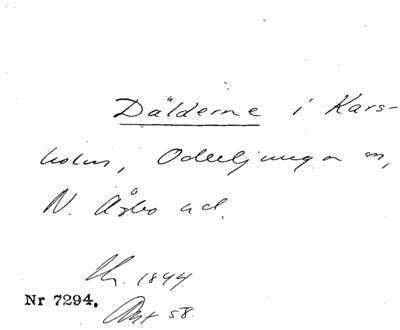 Dälderne i Kars-
holm, Oderljunga sn,
N. Åsbo hd.
1844
Nr 7294.
Akt 58.